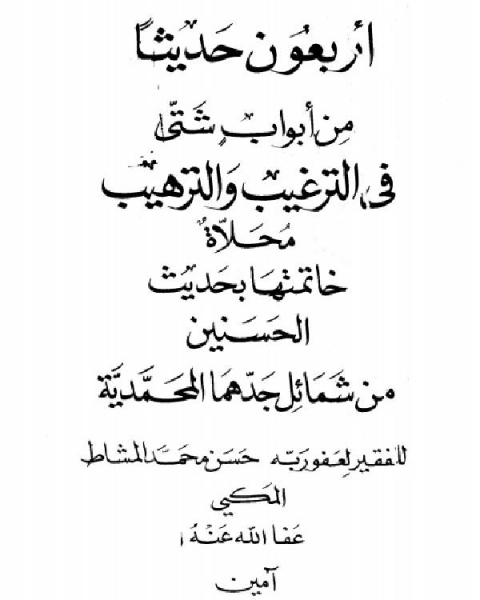 أربعون حديثًا
مِن أبوابٍ شَتّى
في الترغيب والترهيب
مُحَلاّةٌ
خاتمتها بحَديث
الحَسَنين
من شَمائِل جَدّهما المحَمَّديَّة
للفقير لِعَفو ربّه حسَن محمَّد المشاط
المكيي
عَفا الله عَنهُ
آمين